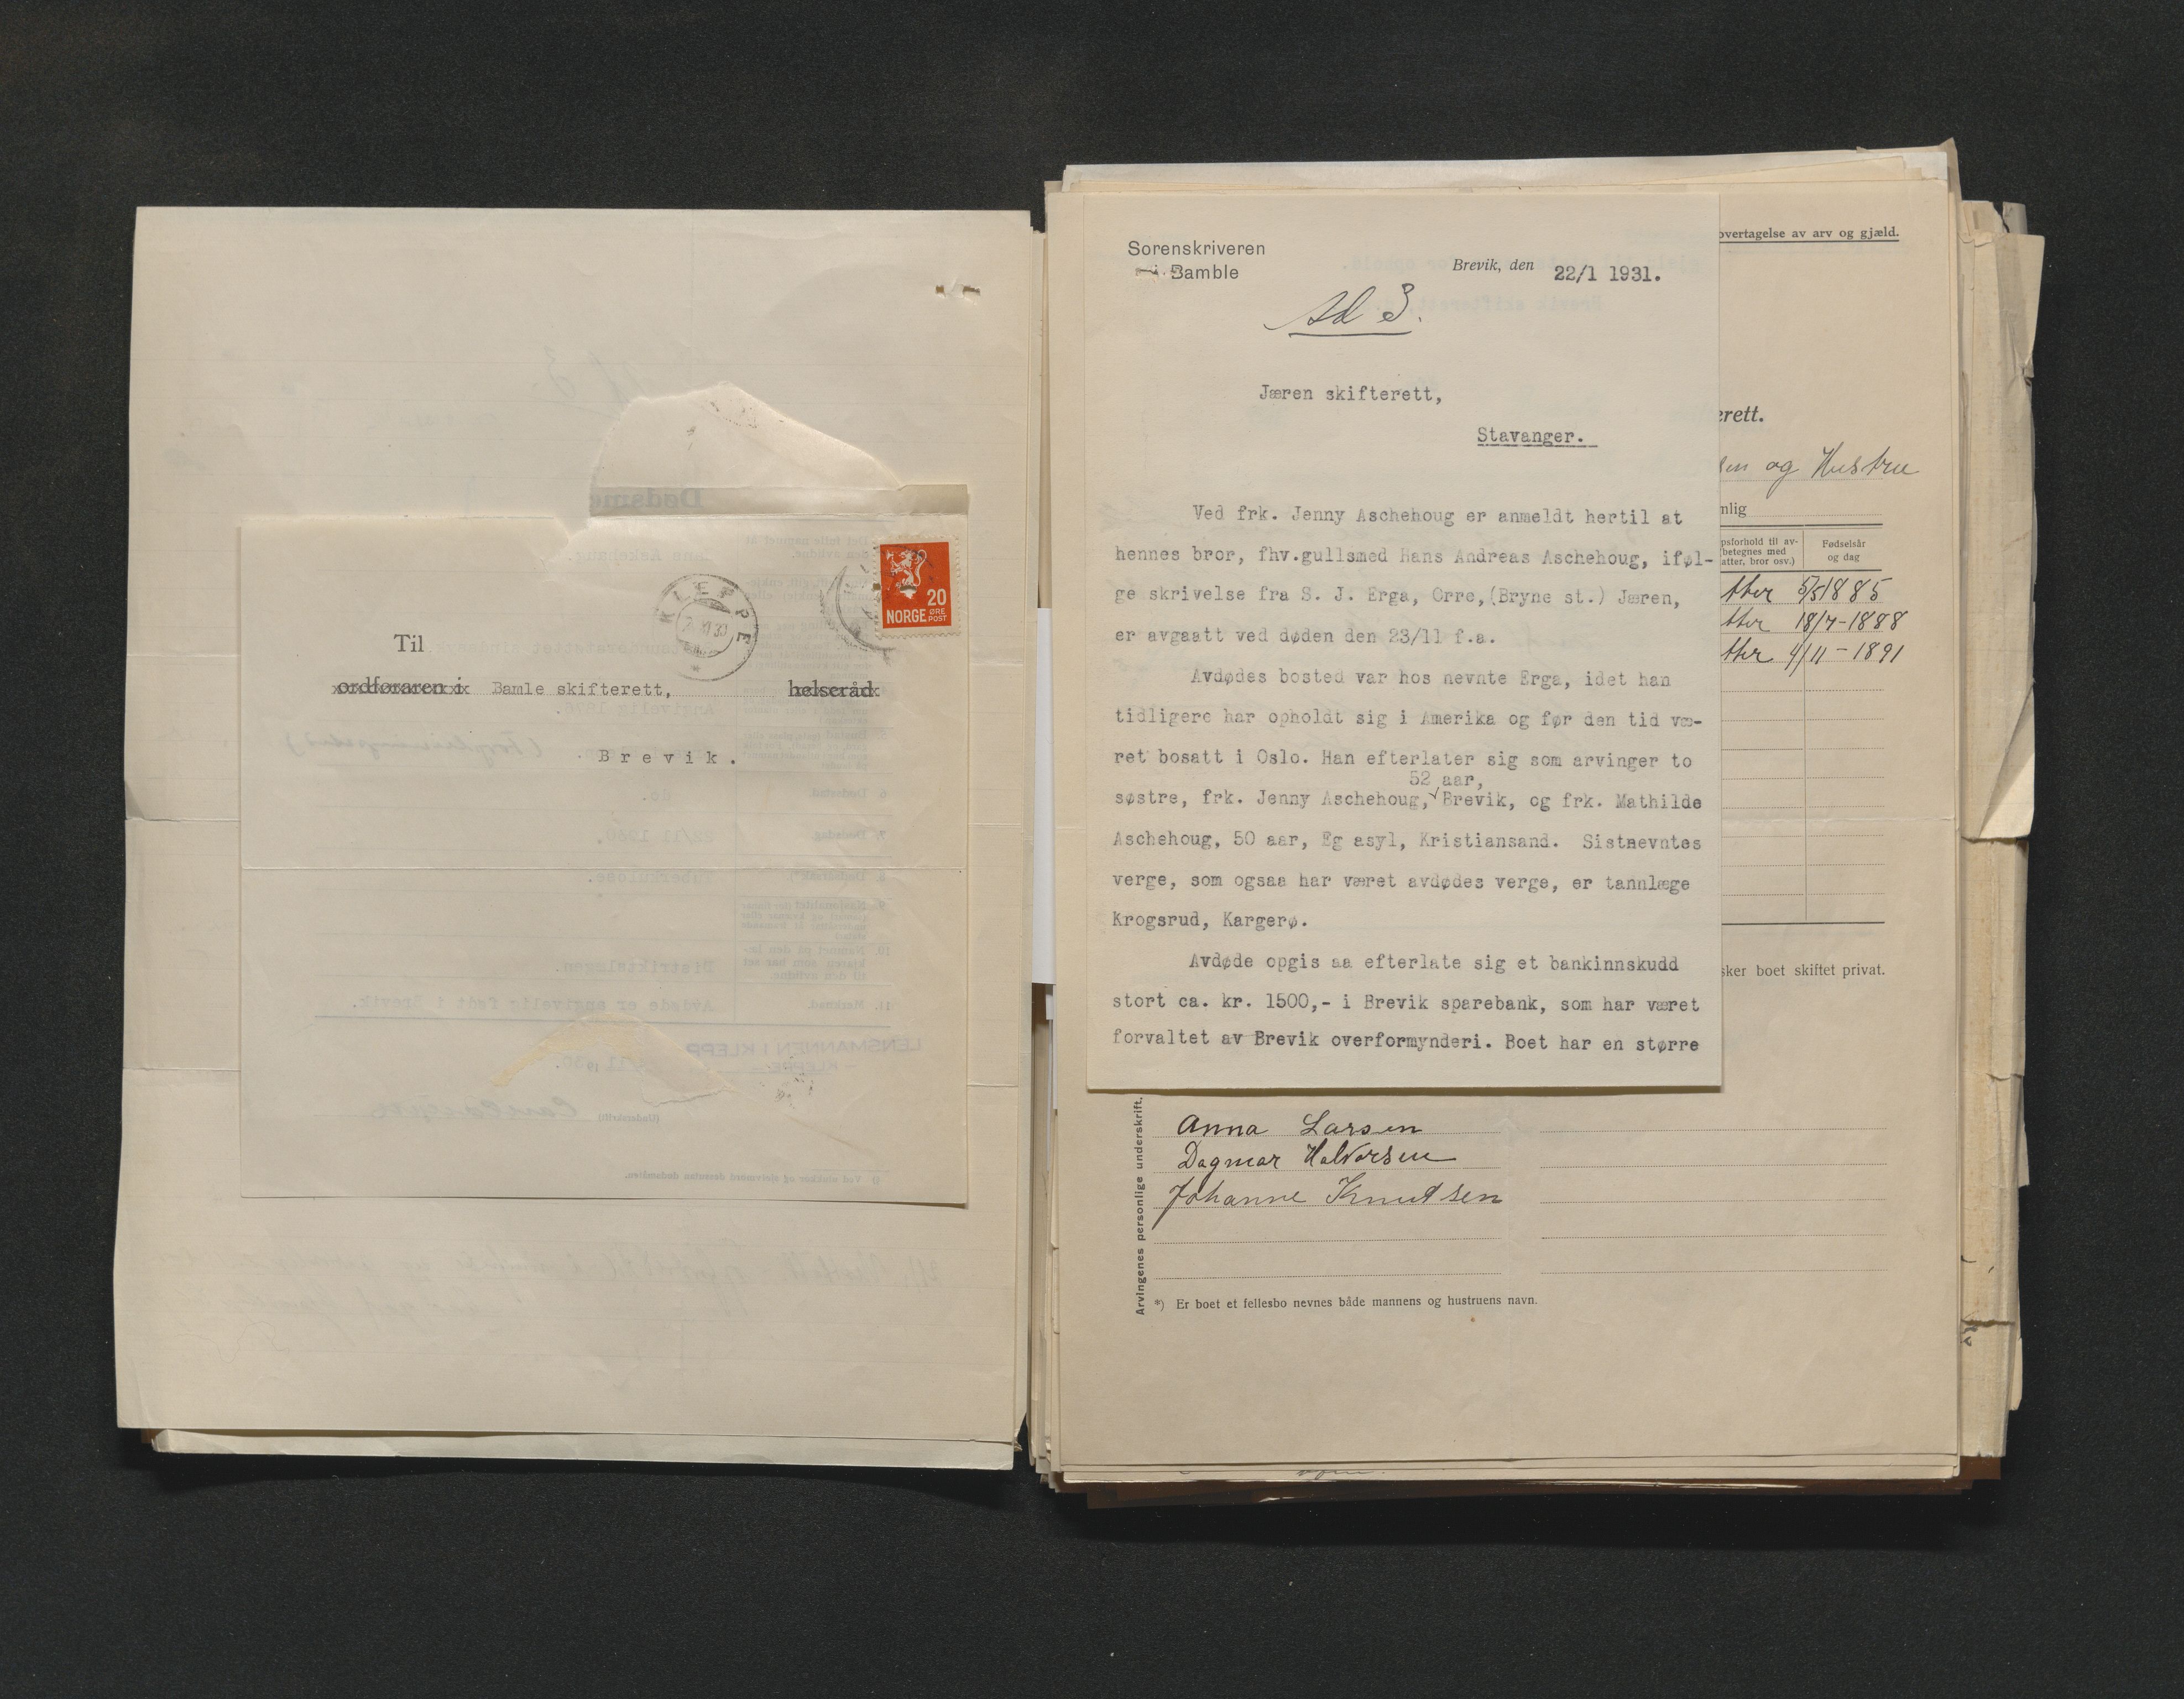 Til
ordføraren i Bamle skifterett, helseråd
Brevik.
KLEPPE
NORGE 20 ØRE POST
Sorenskriveren
i Bamble
Brevik, den 22/1 1931.
Ad 3.
Jæren skifterett,
Stavanger.
Ved frk. Jenny Aschehoug er anmeldt hertil at
hennes bror, fhv.gullsmed Hans Andreas Aschehoug, iføl-
ge skrivelse fra S. J. Erga, Orre,(Bryne st.) Jæren,
er avgaatt ved døden den 23/11 f.a.
Avdødes bosted var hos nevnte Erga, idet han
tidligere har opholdt sig i Amerika og før den tid væ-
ret bosatt i Oslo. Han efterlater sig som arvinger to
52 aar,
søstre, frk. Jenny Aschehoug, Brevik, og frk. Mathilde
Aschehoug, 50 aar, Eg asyl, Kristiansand. Sistnevntes
verge, som ogsaa har været avdødes verge, er tannlæge
Krogsrud, Kargerø.
Avdøde opgis aa efterlate sig et bankinnskudd
stort ca. kr. 1500,- i Brevik sparebank, som har været
forvaltet av Brevik overformynderi. Boet har en større
overtagelse av arv og gjæld.
erett.
sen og Hustru
nlig
psforhold til av-
betegnes med
atter, bror osv.)
Fødselsår
og dag
tter 5/5 1885
tter 18/7-1888
tter 4/11-1891
sker boet skiftet privat.
Arvingenes personlige underskrift.
Anna Larsen
Dagmar Halvorsen
Johanne Knutsen
*) Er boet et fellesbo nevnes både mannens og hustruens navn.